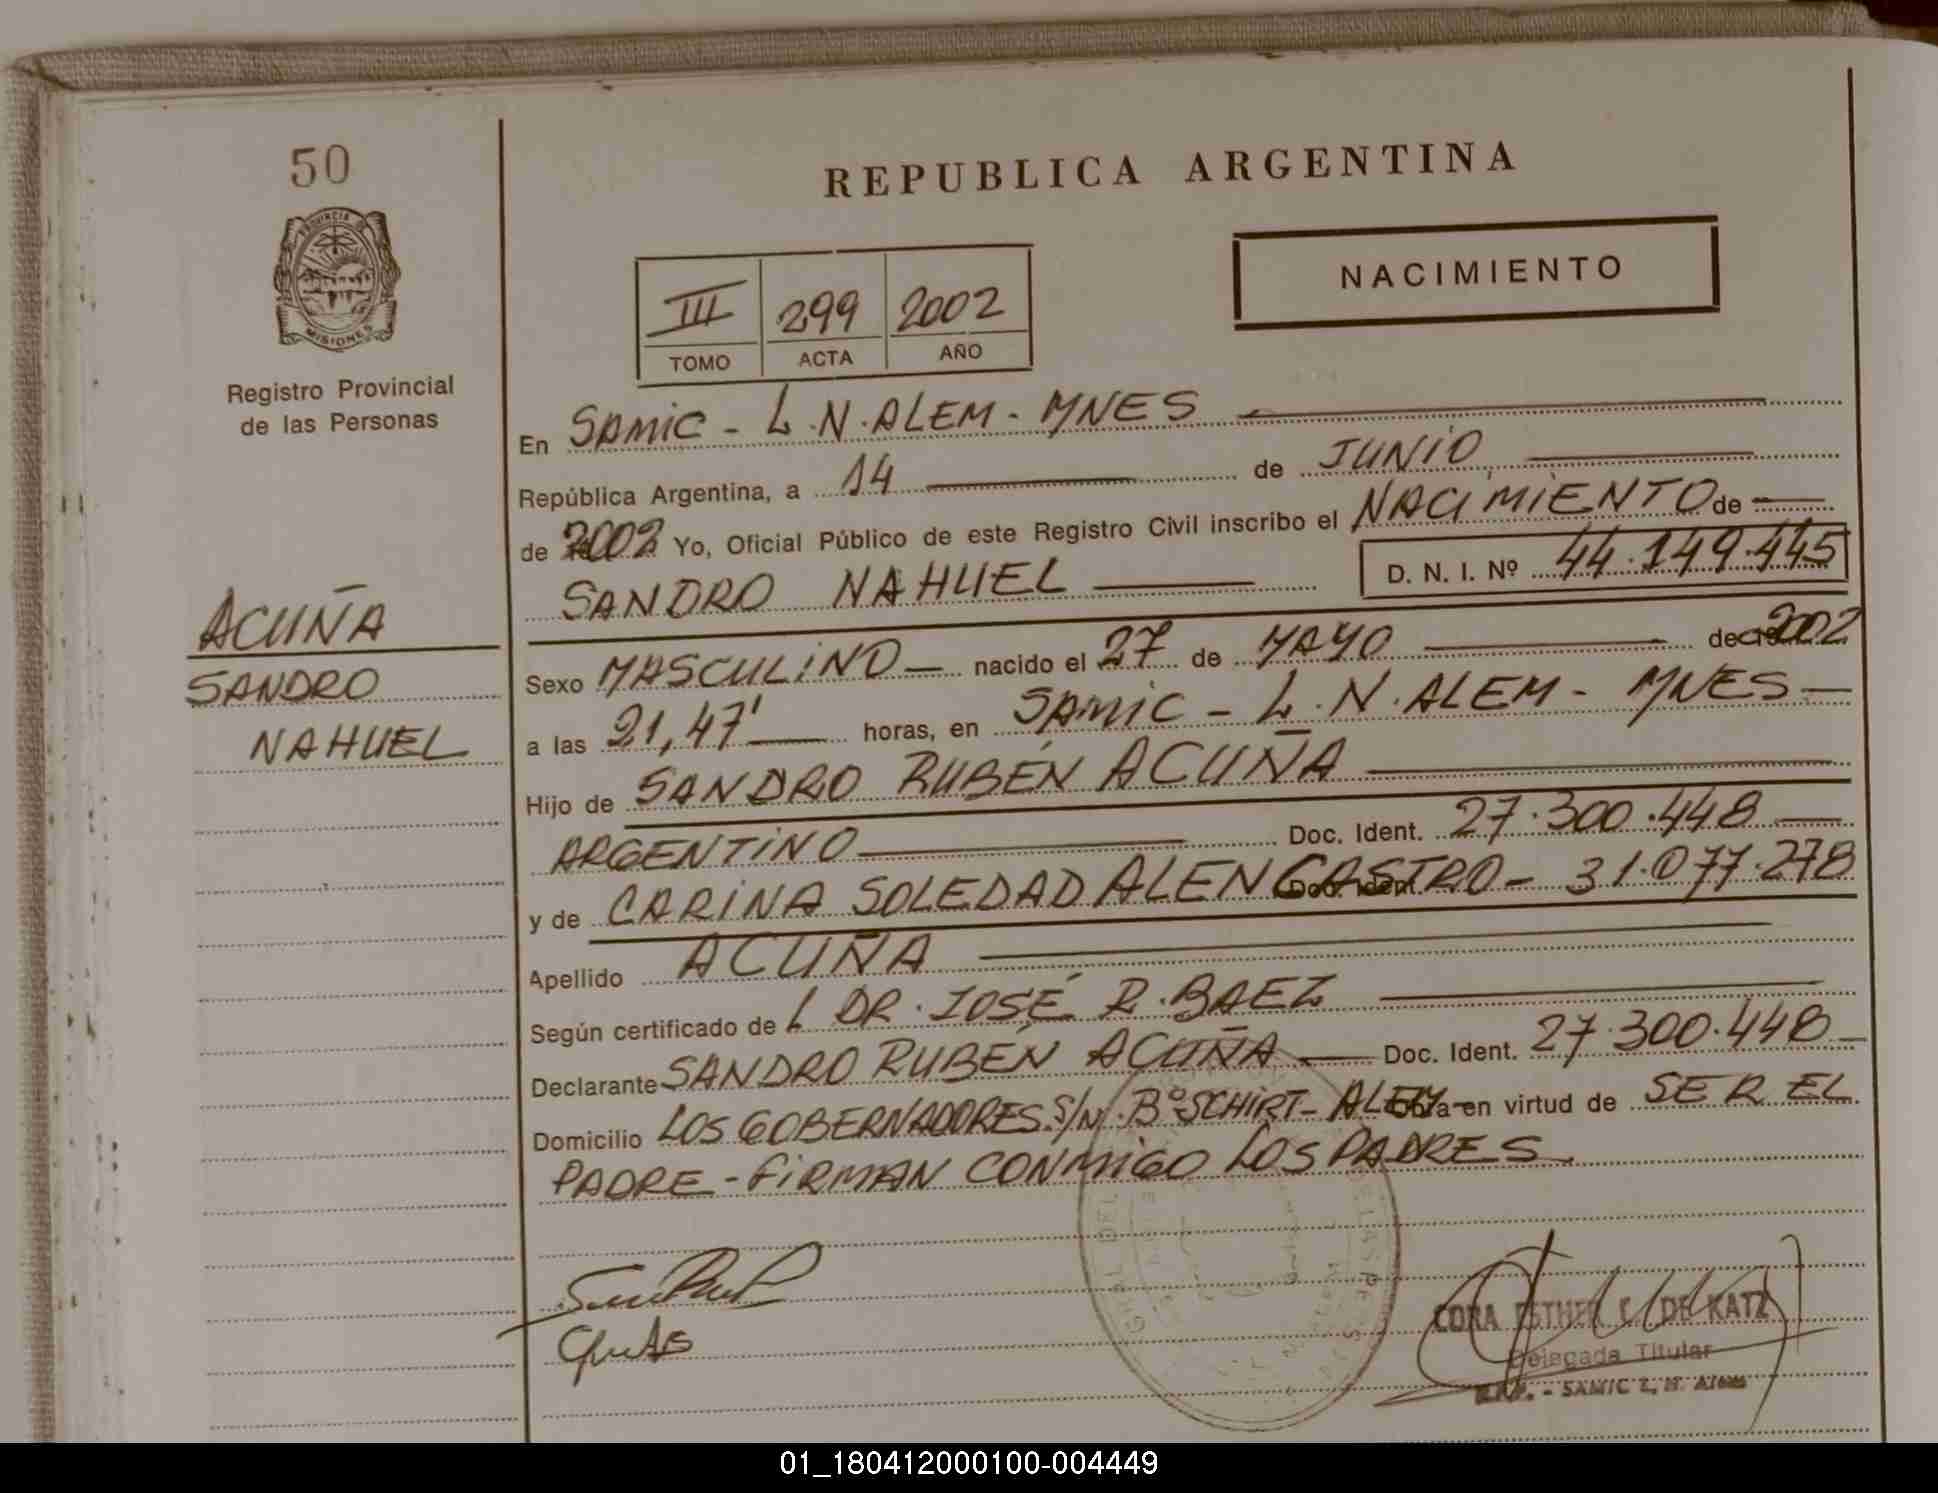 50
PROVINCIA DE
MISIONES
Registro Provincial
de las Personas
ACUÑA
SANDRO
NAHUEL
REPUBLICA ARGENTINA
NACIMIENTO
III 299 2002
TOMO ACTA AÑO
En SAMIC - L.N.ALEM - MNES
República Argentina, a 14 de JUNIO
de 2002 Yo, Oficial Público de este Registro Civil inscribo el NACIMIENTO de
SANDRO NAHUEL D. N. I. Nº 44.149.445
Sexo MASCULINO nacido el 27 de MAYO de 2002
a las 21,47' horas, en SAMIC - L.N.ALEM - MNES
Hijo de SANDRO RUBÉN ACUÑA
ARGENTINO Doc. Ident. 27.300.448
y de CARINA SOLEDAD ALENCASTRO - 31.077.278
Apellido ACUÑA
Según certificado del DR. JOSÉ R. BAEZ
Declarante SANDRO RUBÉN ACUÑA Doc. Ident. 27.300.448
Domicilio LOS GOBERNADORES S/N. Bº SCHIRT - ALEM Obra en virtud de SER EL
PADRE - FIRMAN CONMIGO LOS PADRES
CORA ESTHER DE KATZ
Delegada Titular
R.P.P. - SAMIC L. N. Alem
01_180412000100-004449